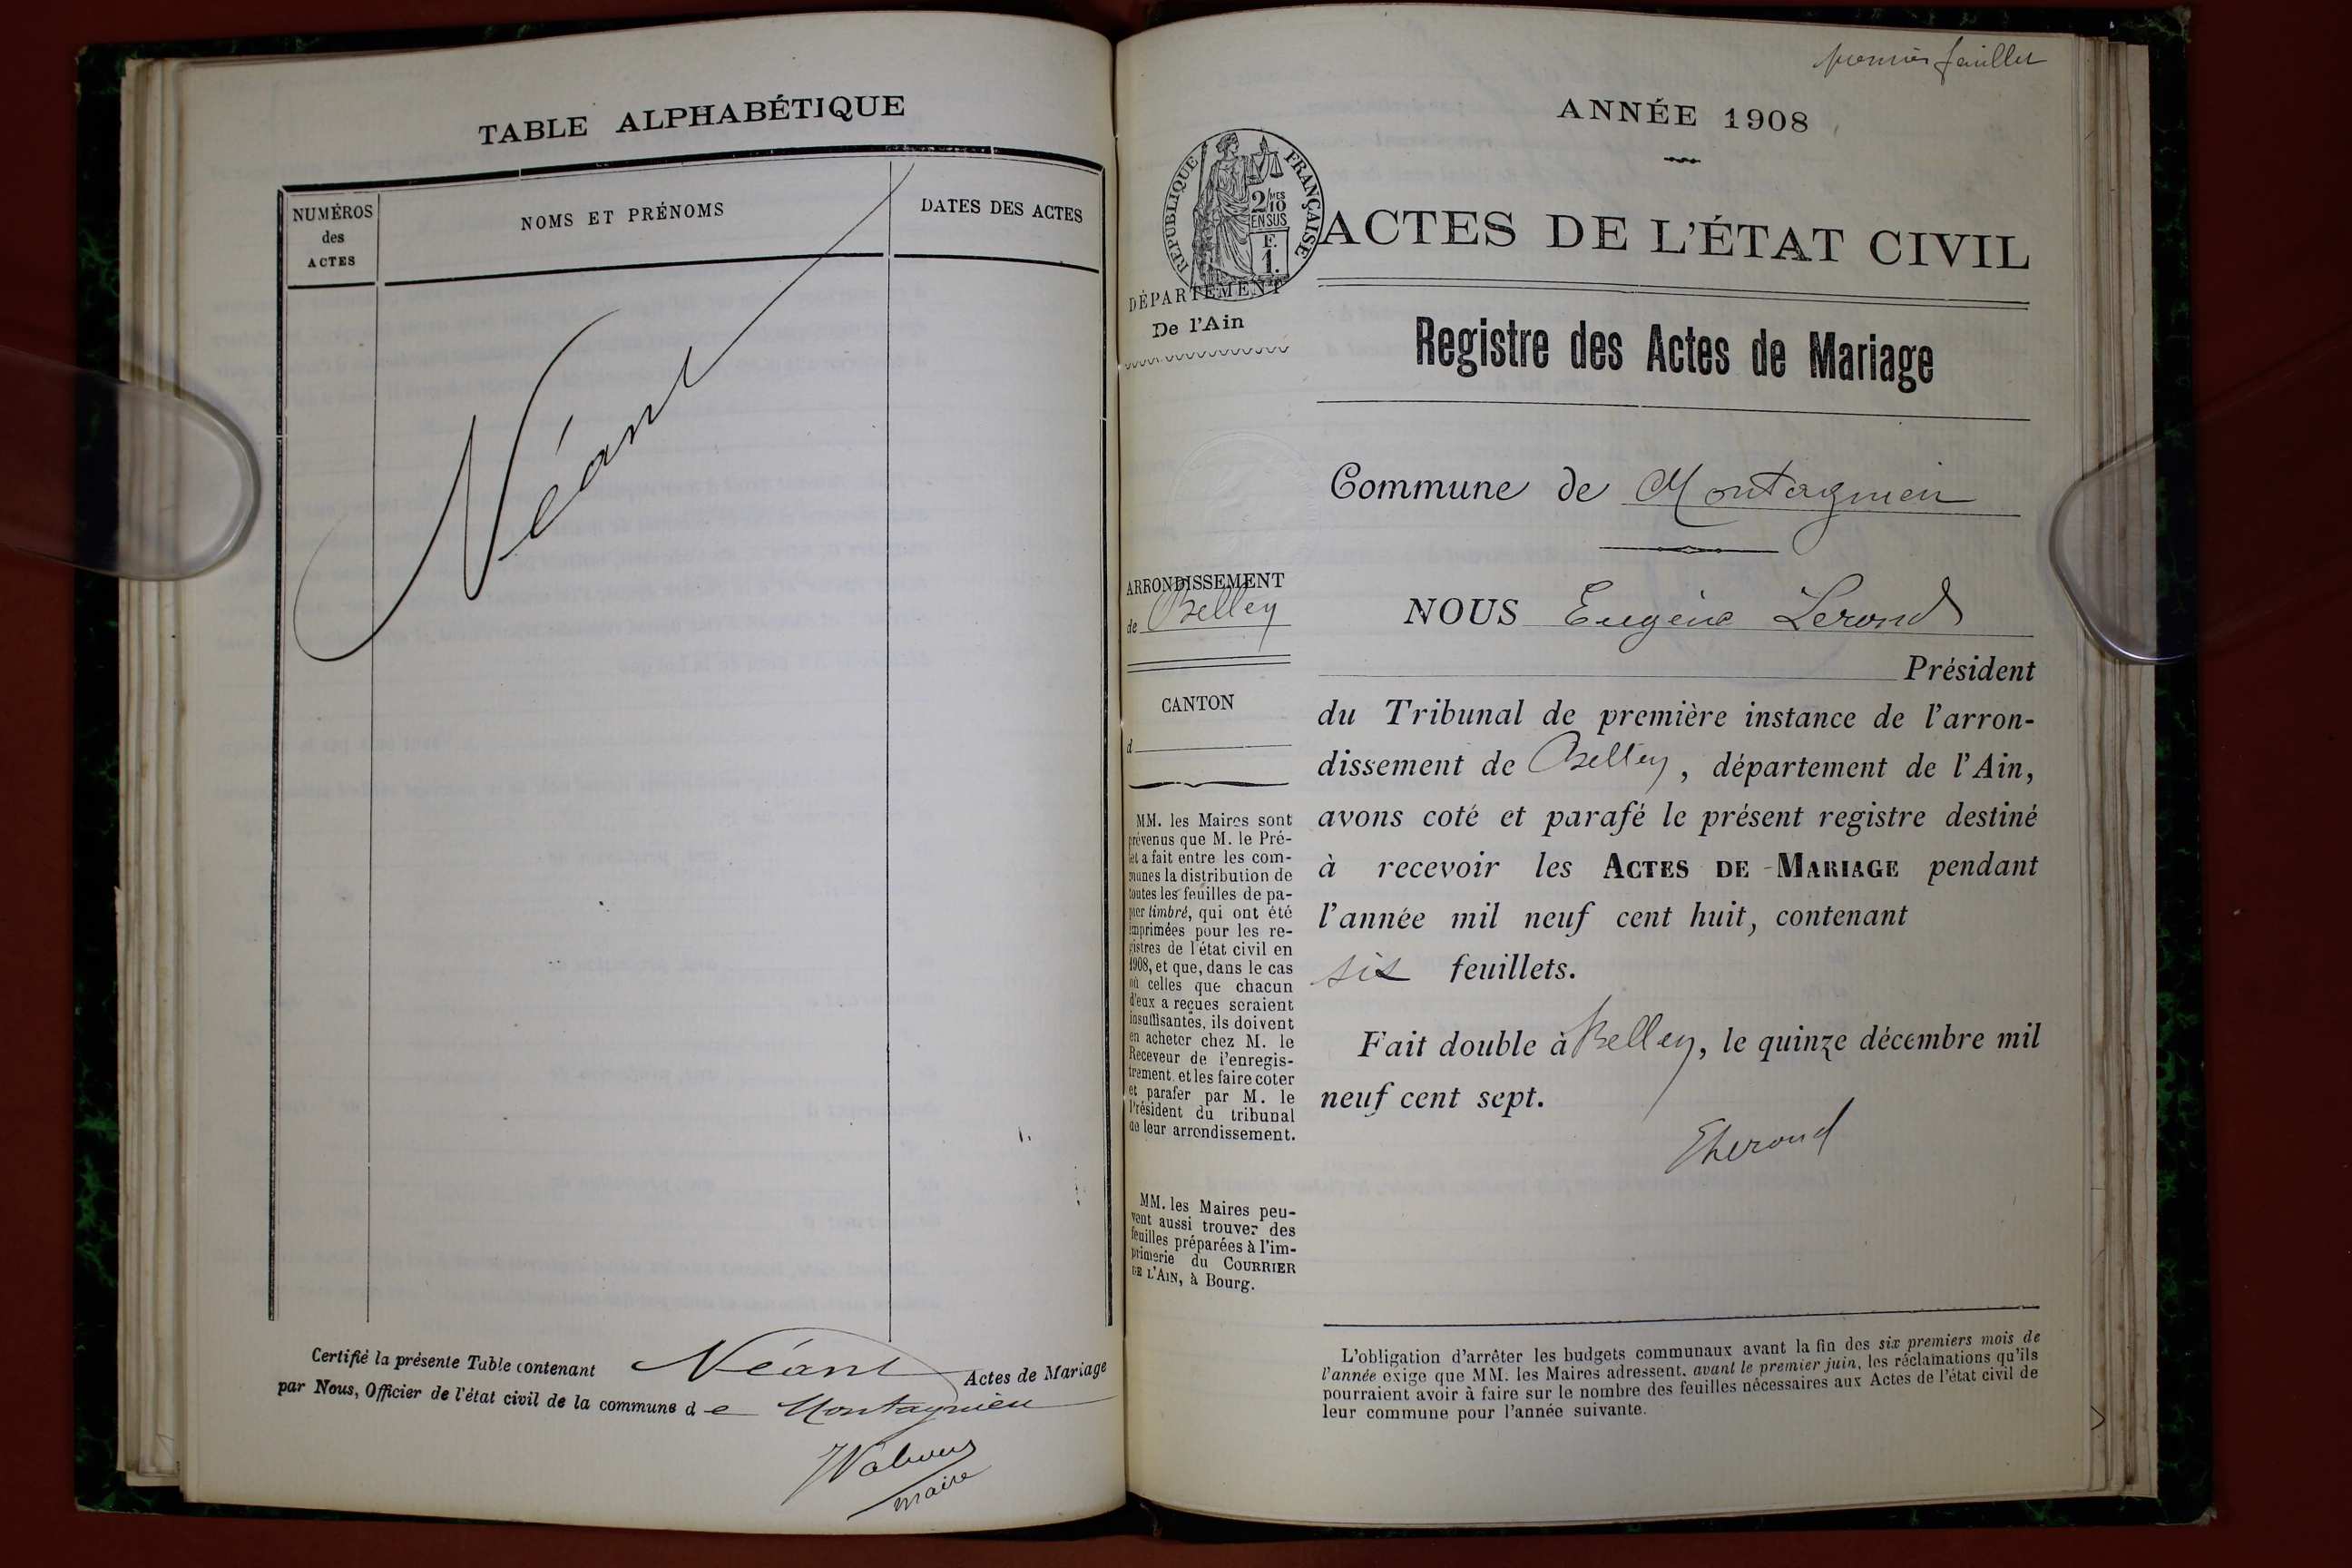 TABLE ALPHABÉTIQUE
NUMÉROS
des
ACTES
NOMS ET PRÉNOMS
DATES DES ACTES
Néant
Certifié la présente Table contenant Néant Actes de Mariage
par Nous, Officier de l'état civil de la commune de Montagnieu
maire
premier feuillet
ANNÉE 1908
RÉPUBLIQUE FRANÇAISE
2/10 MES
EN SUS
F.
1.
ACTES DE L'ÉTAT CIVIL
DÉPARTEMENT
De l'Ain
Registre des Actes de Mariage
Commune de Montagnieu
ARRONDISSEMENT
de Belley
CANTON
d
MM. les Maires sont
prévenus que M. le Pré-
fet a fait entre les com-
munes la distribution de
toutes les feuilles de pa-
pier timbré, qui ont été
imprimées pour les re-
gistres de l'état civil en
1908, et que, dans le cas
où celles que chacun
d'eux a reçues seraient
insuffisantes, ils doivent
en acheter chez M. le
Receveur de l'enregis-
trement, et les faire coter
et parafer par M. le
Président du tribunal
de leur arrondissement.
MM. les Maires peu-
vent aussi trouver des
feuilles préparées à l'im-
primerie du COURRIER
DE L'AIN, à Bourg.
NOUS Eugène Lerond
Président
du Tribunal de première instance de l'arron-
dissement de Belley, département de l'Ain,
avons coté et parafé le présent registre destiné
à recevoir les ACTES DE MARIAGE pendant
l'année mil neuf cent huit, contenant
six feuillets.
Fait double à Belley, le quinze décembre mil
neuf cent sept.
L'obligation d'arrêter les budgets communaux avant la fin des six premiers mois de
l'année exige que MM. les Maires adressent, avant le premier juin, les réclamations qu'ils
pourraient avoir à faire sur le nombre des feuilles nécessaires aux Actes de l'état civil de
leur commune pour l'année suivante.